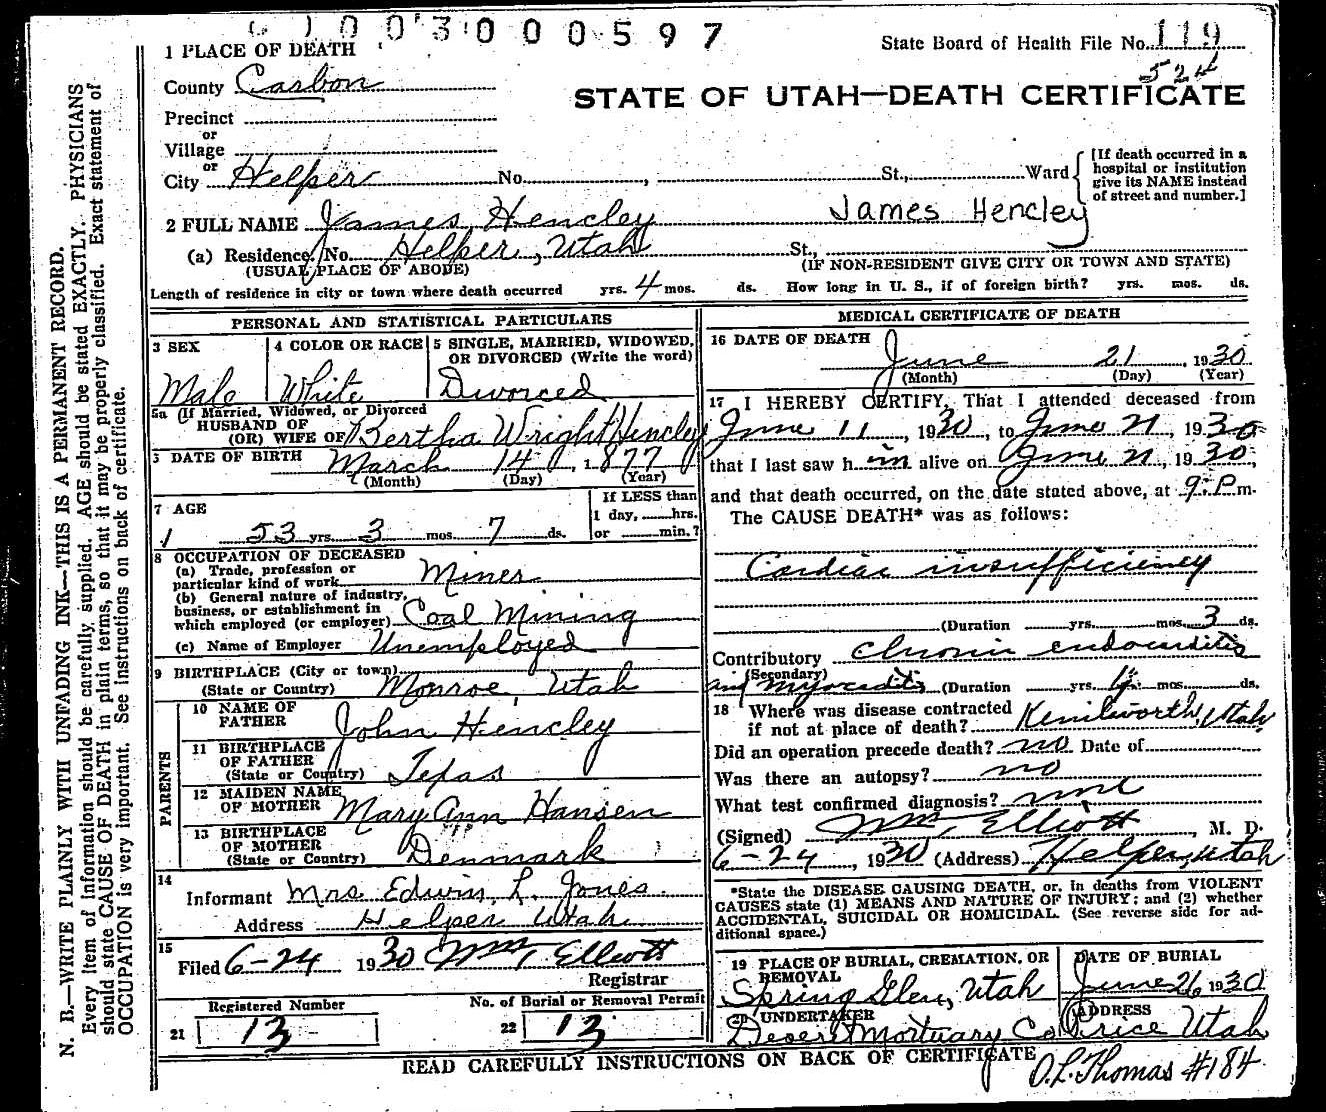 003000597
1 PLACE OF DEATH
State Board of Health File No. 119
524
County Carbon
STATE OF UTAH—DEATH CERTIFICATE
Precinct
or
Village
or
City Helper No. , St., Ward
[If death occurred in a hospital or institution give its NAME instead of street and number.]
2 FULL NAME James Hencley James Hencley
(a) Residence, No. Helper, Utah St.,
(USUAL PLACE OF ABODE) (IF NON-RESIDENT GIVE CITY OR TOWN AND STATE)
Length of residence in city or town where death occurred yrs. 4 mos. ds. How long in U. S., if of foreign birth? yrs. mos. ds.
PERSONAL AND STATISTICAL PARTICULARS
3 SEX 4 COLOR OR RACE 5 SINGLE, MARRIED, WIDOWED, OR DIVORCED (Write the word)
Male White Divorced
5a (If Married, Widowed, or Divorced
HUSBAND OF
(OR) WIFE OF Bertha Wright Hencley
DATE OF BIRTH March 14, 1877
(Month) (Day) (Year)
7 AGE If LESS than
1 day, hrs.
53 yrs. 3 mos. 7 ds. or min.?
8 OCCUPATION OF DECEASED
(a) Trade, profession or
particular kind of work Miner
(b) General nature of industry,
business, or establishment in
which employed (or employer) Coal Mining
(c) Name of Employer Unemployed
9 BIRTHPLACE (City or town)
(State or Country) Monroe, Utah
PARENTS
10 NAME OF
FATHER John Hencley
11 BIRTHPLACE
OF FATHER
(State or Country) Texas
12 MAIDEN NAME
OF MOTHER Mary Ann Hansen
13 BIRTHPLACE
OF MOTHER
(State or Country) Denmark
14
Informant Mrs Edwin L. Jones
Address Helper Utah
15
Filed 6-24 1930 Wm. Elliott
Registrar
Registered Number No. of Burial or Removal Permit
21 13 22 13
MEDICAL CERTIFICATE OF DEATH
16 DATE OF DEATH
June 21 1930
(Month) (Day) (Year)
17 I HEREBY CERTIFY, That I attended deceased from
June 11, 1930, to June 21, 1930
that I last saw h im alive on June 21, 1930,
and that death occurred, on the date stated above, at 9 P m.
The CAUSE DEATH* was as follows:
Cardiac insufficiency
(Duration yrs. mos. 3 ds.
Contributory chronic endocarditis
(Secondary)
and myocarditis (Duration yrs. mos. ds.
18 Where was disease contracted
if not at place of death? Kenilworth, Utah
Did an operation precede death? no Date of
Was there an autopsy? no
What test confirmed diagnosis? none
(Signed) Wm. Elliott, M. D.
6-24, 1930 (Address) Helper, Utah
*State the DISEASE CAUSING DEATH, or, in deaths from VIOLENT
CAUSES state (1) MEANS AND NATURE OF INJURY; and (2) whether
ACCIDENTAL, SUICIDAL OR HOMICIDAL. (See reverse side for ad-
ditional space.)
19 PLACE OF BURIAL, CREMATION, OR REMOVAL DATE OF BURIAL
Spring Glen, Utah June 26 1930
20 UNDERTAKER ADDRESS
Deseret Mortuary Co Price Utah
READ CAREFULLY INSTRUCTIONS ON BACK OF CERTIFICATE
O.L. Thomas #184
N. B.—WRITE PLAINLY WITH UNFADING INK—THIS IS A PERMANENT RECORD.
Every item of information should be carefully supplied. AGE should be stated EXACTLY. PHYSICIANS
should state CAUSE OF DEATH in plain terms, so that it may be properly classified. Exact statement of
OCCUPATION is very important. See instructions on back of certificate.